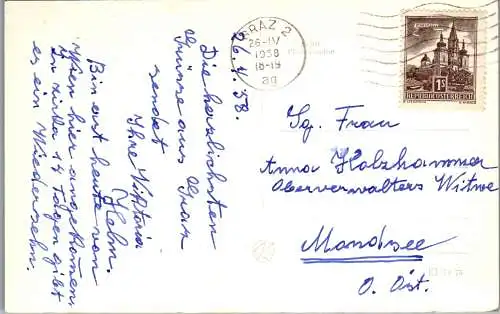 GRAZ 2
26-IV
1958
18-19
ag
1S
REPUBLIK ÖSTERREICH
26.4.58.
Die herzlichsten
Grüsse aus Graz
sendet
Ihre Viktoria
Helm.
Bin erst heute von
Wien hier angekommen,
in zirka 14 Tagen gibt
es ein Wiedersehn.
Sg. Frau
Anna Holzhammer
Oberverwalters Witwe
Mondsee
O. Öst.